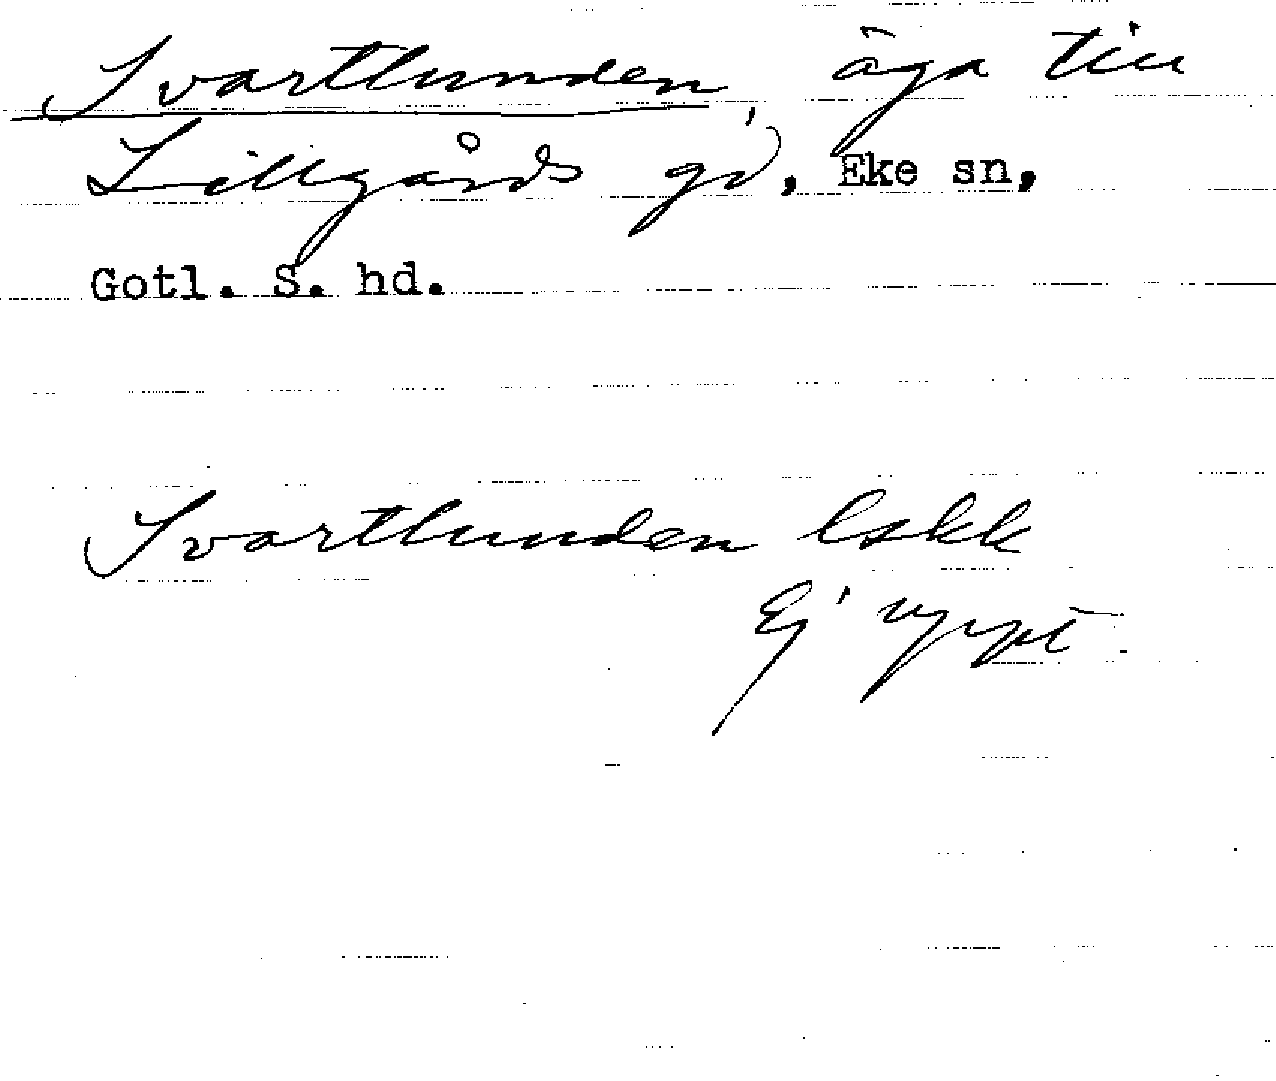 Svartlunden, äga till
Lillgårds gd, Eke sn,
Gotl. S. hd.
Svartlunden Lskk
Ej uppt.